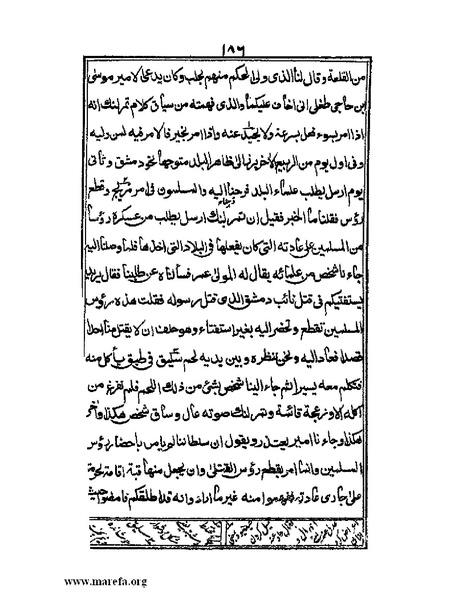 ١٨٦
من القلعة وقال لنا الذى ولى الحكم منهم بحلب وكان يدعى الامير موسى
ابن حاجى طغلى انى اخاف عليكما والذى فهمته من سياق كلام تمرلنك انه
اذا امر بسوء فعل بسرعة ولا يحيد عنه واذا امر بخير فالامر فيه لمن وليه
وفى اول يوم من الربيع الاخر برز الى ظاهر البلد متوجها نحو دمشق وثانى
يوم ارسل يطلب علماء البلد فرحنا اليه والمسلمون فى امر مريج وقطع
رؤس فقلنا ما الخبر فقيل ان تمرلنك ارسل يطلب من عسكره رؤسا
من المسلمين على عادته التى كان يفعلها فى البلاد التى اخذها فلما وصلنا اليه
جاءنا شخص من علمائه يقال له المولى عمر فسألناه عن طلبنا فقال يريد
يستفتيكم فى قتل نائب دمشق الذى قتل رسوله فقلت هذه رؤس
المسلمين تقطع وتحضر اليه بغير استفتاء وهو حلف ان لا يقتل منا احدا
قصدا فعاد اليه ونحن ننظره وبين يديه لحم سليق فى طبق يأكل منه
فتكلم معه يسيرا ثم جاء الينا شخص بشئ من ذلك اللحم فلم نفرغ من
اكله الا وزعجة قائمة وتمرلنك صوته عال وساق شخص هكذا واخر
هكذا وجاءنا امير يعتذر ويقول ان سلطاننا لم يامر باحضار رؤس
المسلمين وانما امر بقطع رؤس القتلى وان يجعل منها قبة اقامة لحرمته
على جارى عادته ففهموا منه غير ما اراد وانه قد اطلقكم فامضوا حيث
www.marefa.org